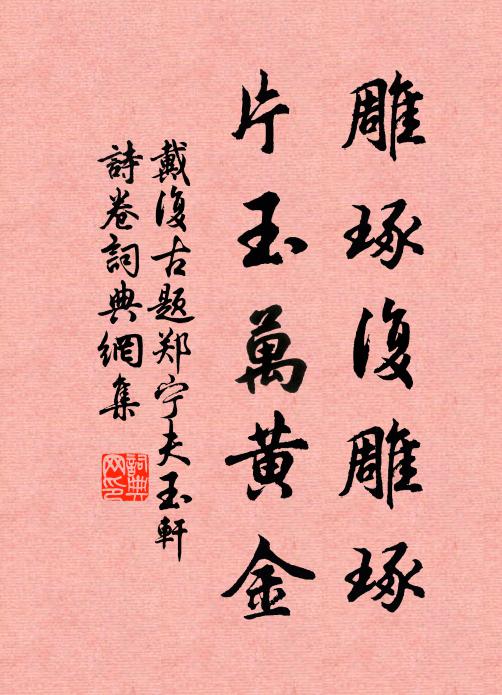 雕琢復雕琢
片玉萬黄金
戴復古題郑宁夫玉軒
詩卷詞典網集
詞典网印